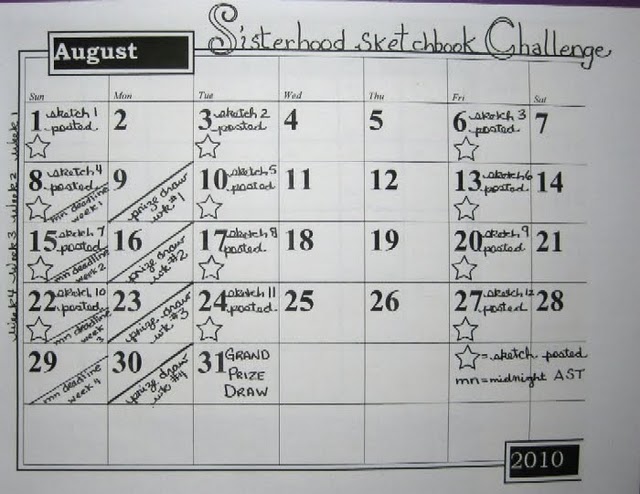 August
Sisterhood Sketchbook Challenge
Sun Mon Tue Wed Thu Fri Sat
week 1
1 sketch 1 posted
2
3 sketch 2 posted
4
5
6 sketch 3 posted
7
week 2
8 sketch 4 posted
mn deadline week 1
9 prize draw wk #1
10 sketch 5 posted
11
12
13 sketch 6 posted
14
week 3
15 sketch 7 posted
mn deadline week 2
16 prize draw wk #2
17 sketch 8 posted
18
19
20 sketch 9 posted
21
week 4
22 sketch 10 posted
mn deadline week 3
23 prize draw wk #3
24 sketch 11 posted
25
26
27 sketch 12 posted
28
29 mn deadline week 4
30 prize draw wk #4
31 GRAND PRIZE DRAW
= sketch posted
mn = midnight AST
2010